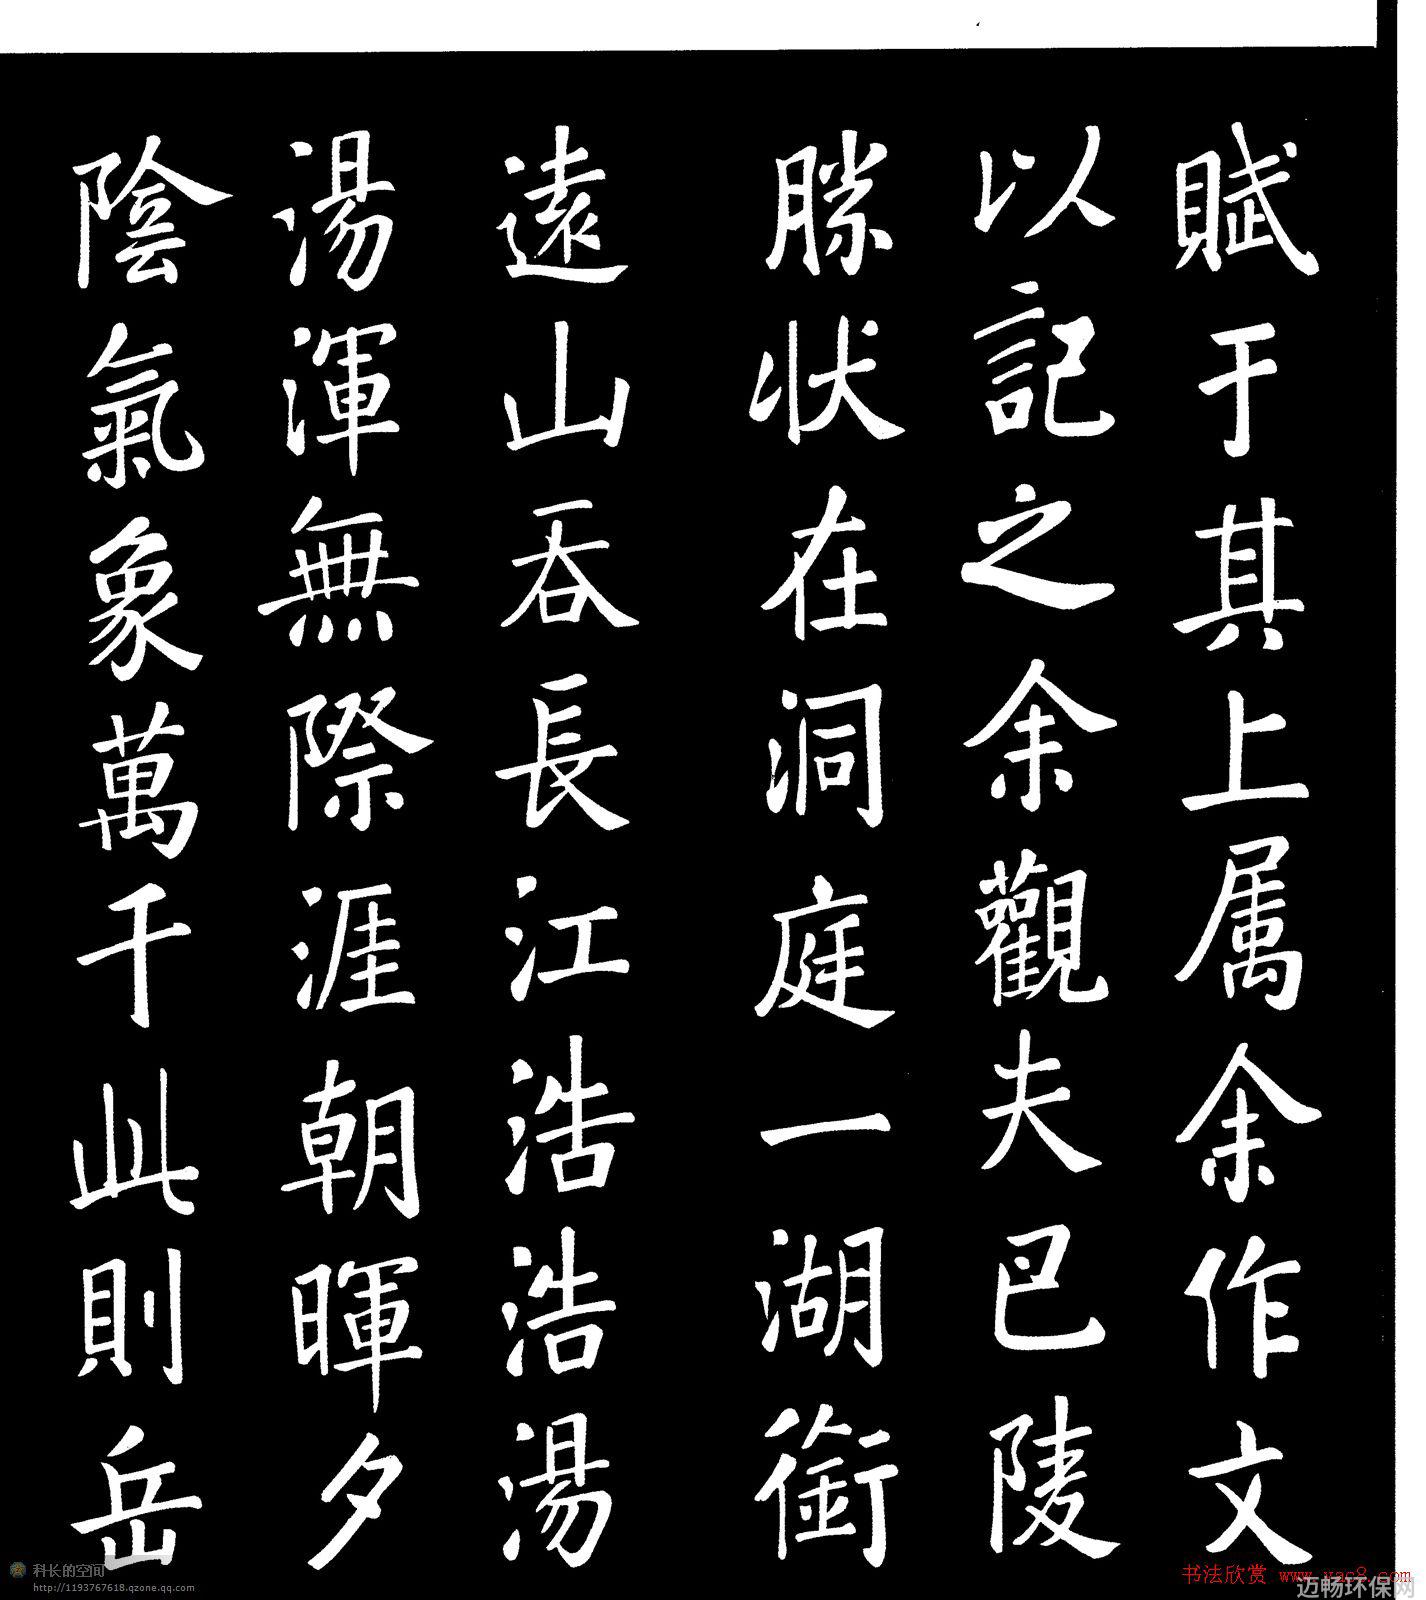 賦于其上属余作文
以記之余觀夫巴陵
勝状在洞庭一湖銜
遠山吞長江浩浩湯
湯渾無際涯朝暉夕
陰氣象萬千此則岳
科长的空间
http://1193767618.qzone.qq.com
书法欣赏 www.yac8.com
迈畅环保网